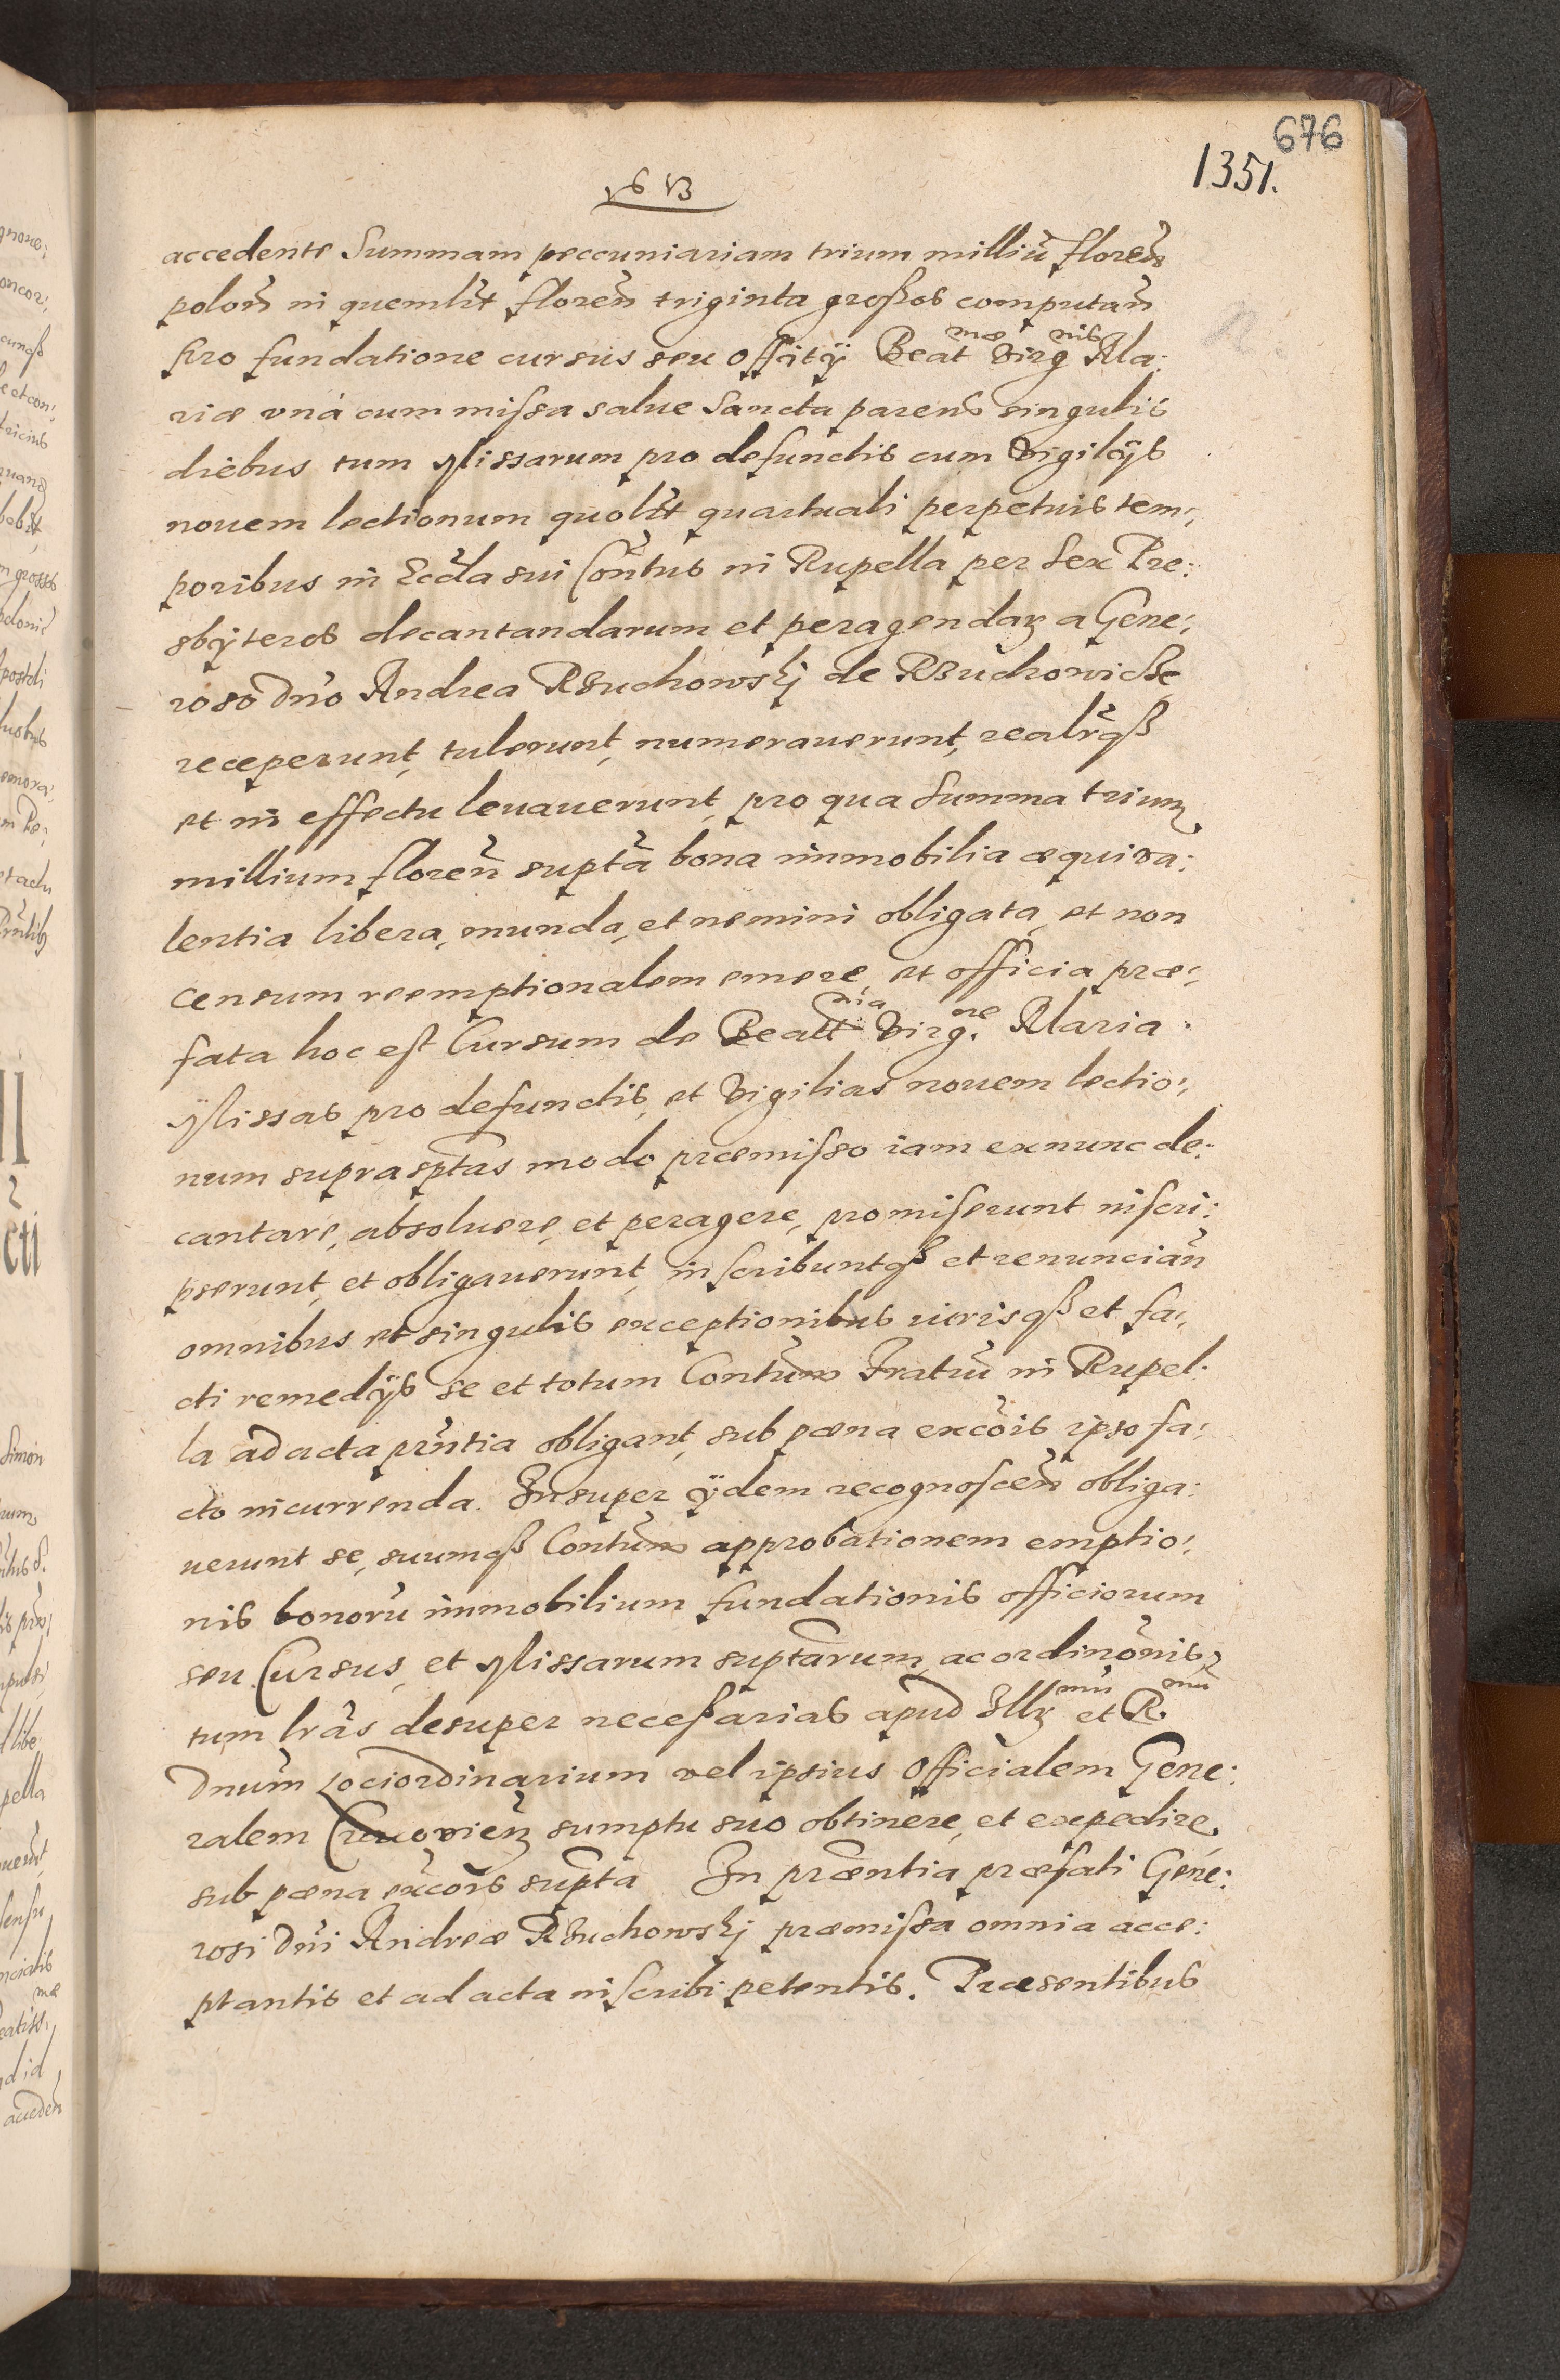 676
1351.
1613
accedente Summam peccuniariam trium milliũ floreñ
poloñ in quemlibt floreñ triginta großos computañ
pro fundatione cursus seu officÿ Beatmæ Virgnis Ma:
riæ vná cum missa salue Sancta parens singulis
diebus tum Missarum pro defunctis cum Vigilÿs
nouem lectionum quolibt quartuali perpetuis tem:
poribus in Eccla sui Conũtus in Rupella per Sex Pre:
sbÿteros decantandarum et peragendarꝫ a Gene:
roso Dno Andrea Rzuchowskj de Rzuchowicze
receperunt, tulerunt, numerauerunt, realrqꝫ
et in effectu leuauerunt, pro qua Summa trium
millium floreñ supta bona immobilia æquiua:
lentia libera, munda, et nemini obligata, et non
censum reemptionalem emere, et officia præ:
fata hoc est Cursum de Beattma Virg.ne Maria
Missas pro defunctis, et Vigilias nouem lectio:
num suprasptas modo præmisso iam ex nunc de:
cantare, absoluere, et peragere, promiserunt inscri:
pserunt, et obligauerunt, inscribuntqꝫ et renunciañ
omnibus et singulis exceptionibus iurisqꝫ et fa:
cti remedÿs se et totum Contum Fratrũ in Rupel:
la ad acta pñtia obligant, sub pæna excõis ipso fa:
cto incurrenda. Insuper ÿdem recognosceñ obliga:
uerunt se, suumqꝫ Contum approbationem emptio:
nis bonorũ immobilium fundationis officiorum
seu Cursus, et Missarum suptarum, ac ordinõnis,
tum lras desuper necessarias apud Illꝫmũ et R.mũ
Dnum Lociordinarium vel ipsius Officialem Gene:
ralem Cracouieñ sumptu suo obtinere, et expedire
sub pæna excõis supta In præntia præfati Gene:
rosi Dni Andreæ Rzuchowskj præmissa omnia acce:
ptantis et ad acta inscribi petentis. Præsentibus